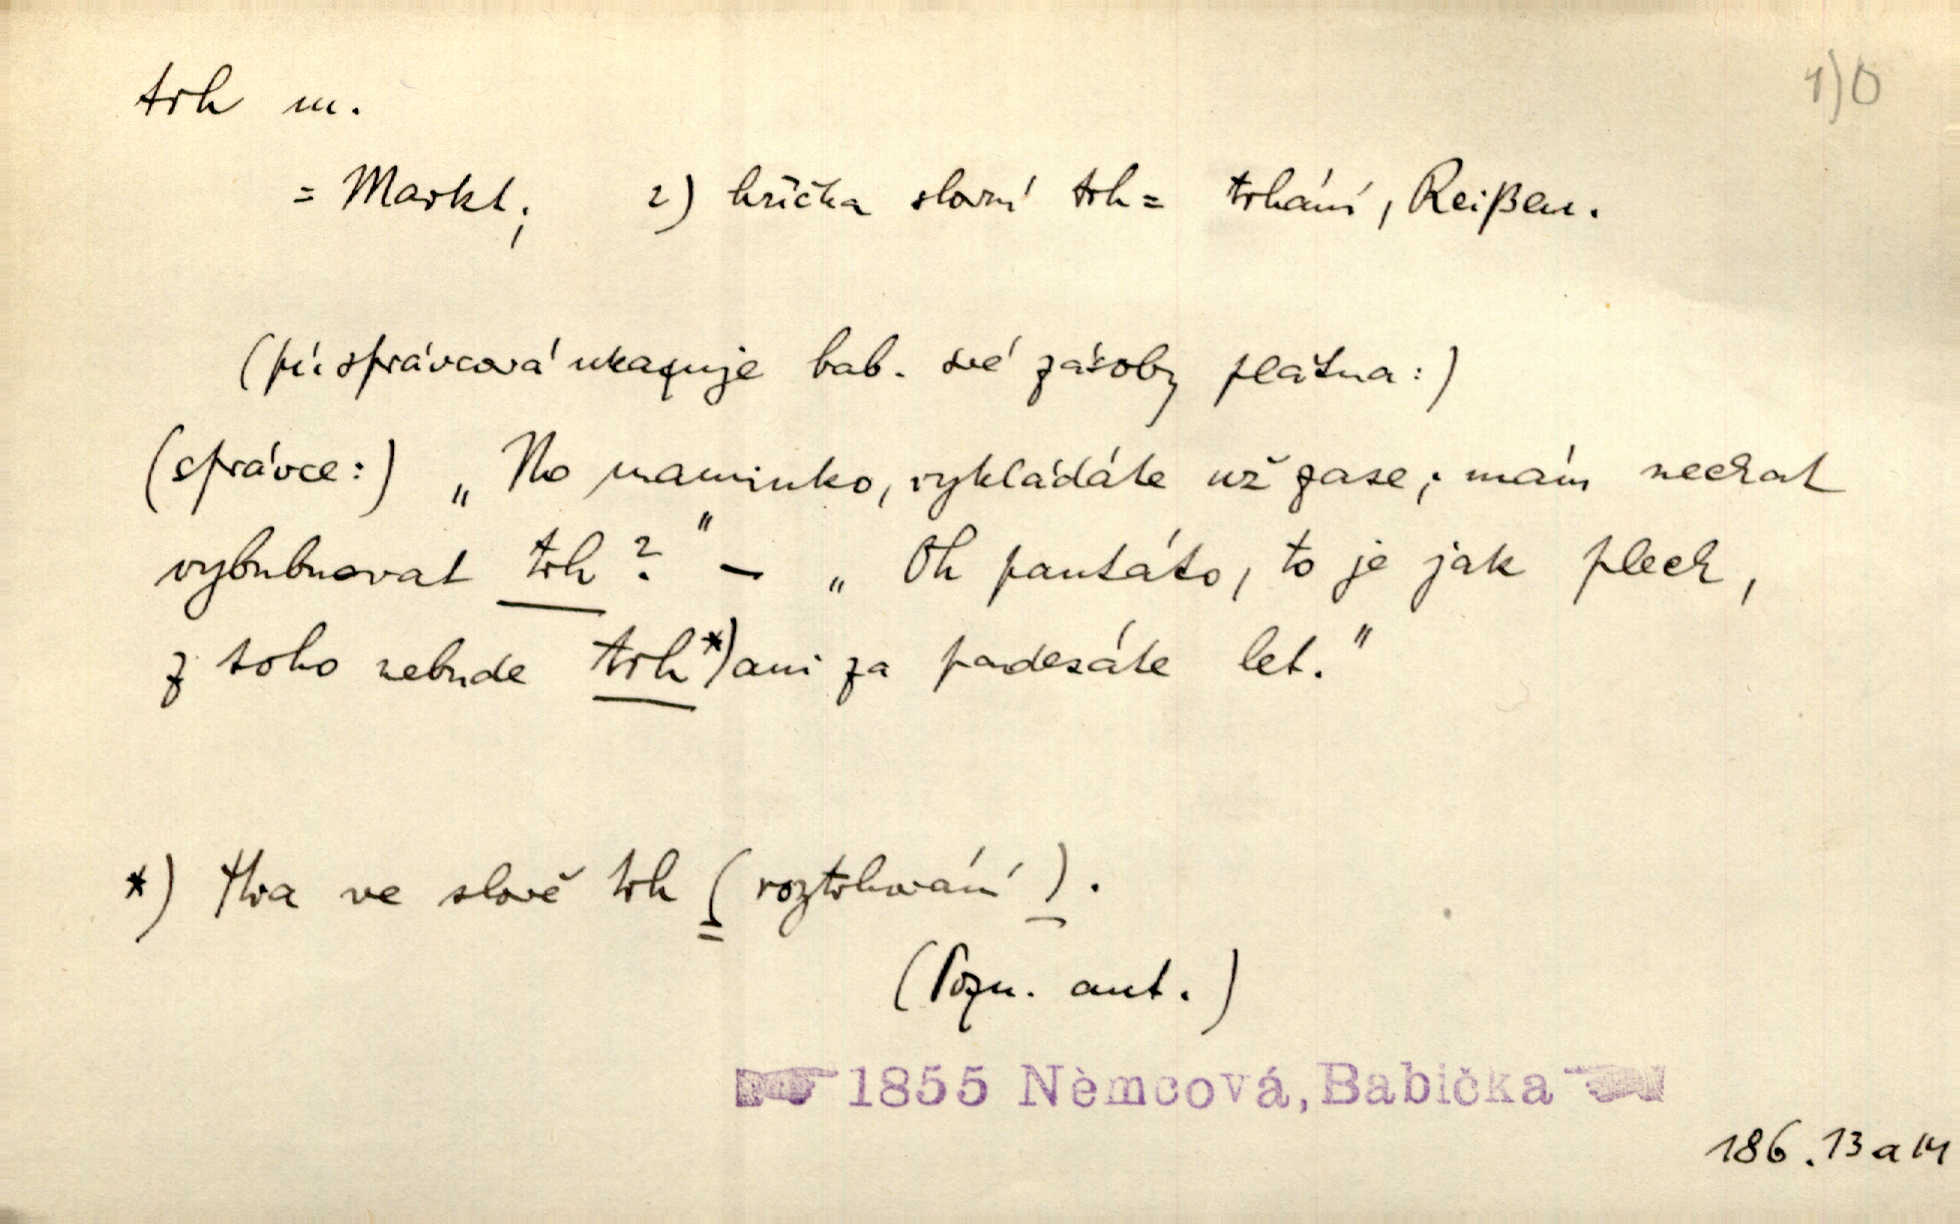 trh m.
1)0
= Markt; 2) hříčka slovní trh = trhání, Reißen.
(pí: správcová ukazuje bab. své zásoby plátna:)
(správce:) „No maminko, vykládáte už zase; mám nechat
vybubnovat trh?" — „Oh pantáto, to je jak plech,
z toho nebude trh*) ani za padesáte let."
*) Hra ve slově trh (roztrhování).
(Pozn. aut.)
1855 Němcová, Babička
186.13 a 14